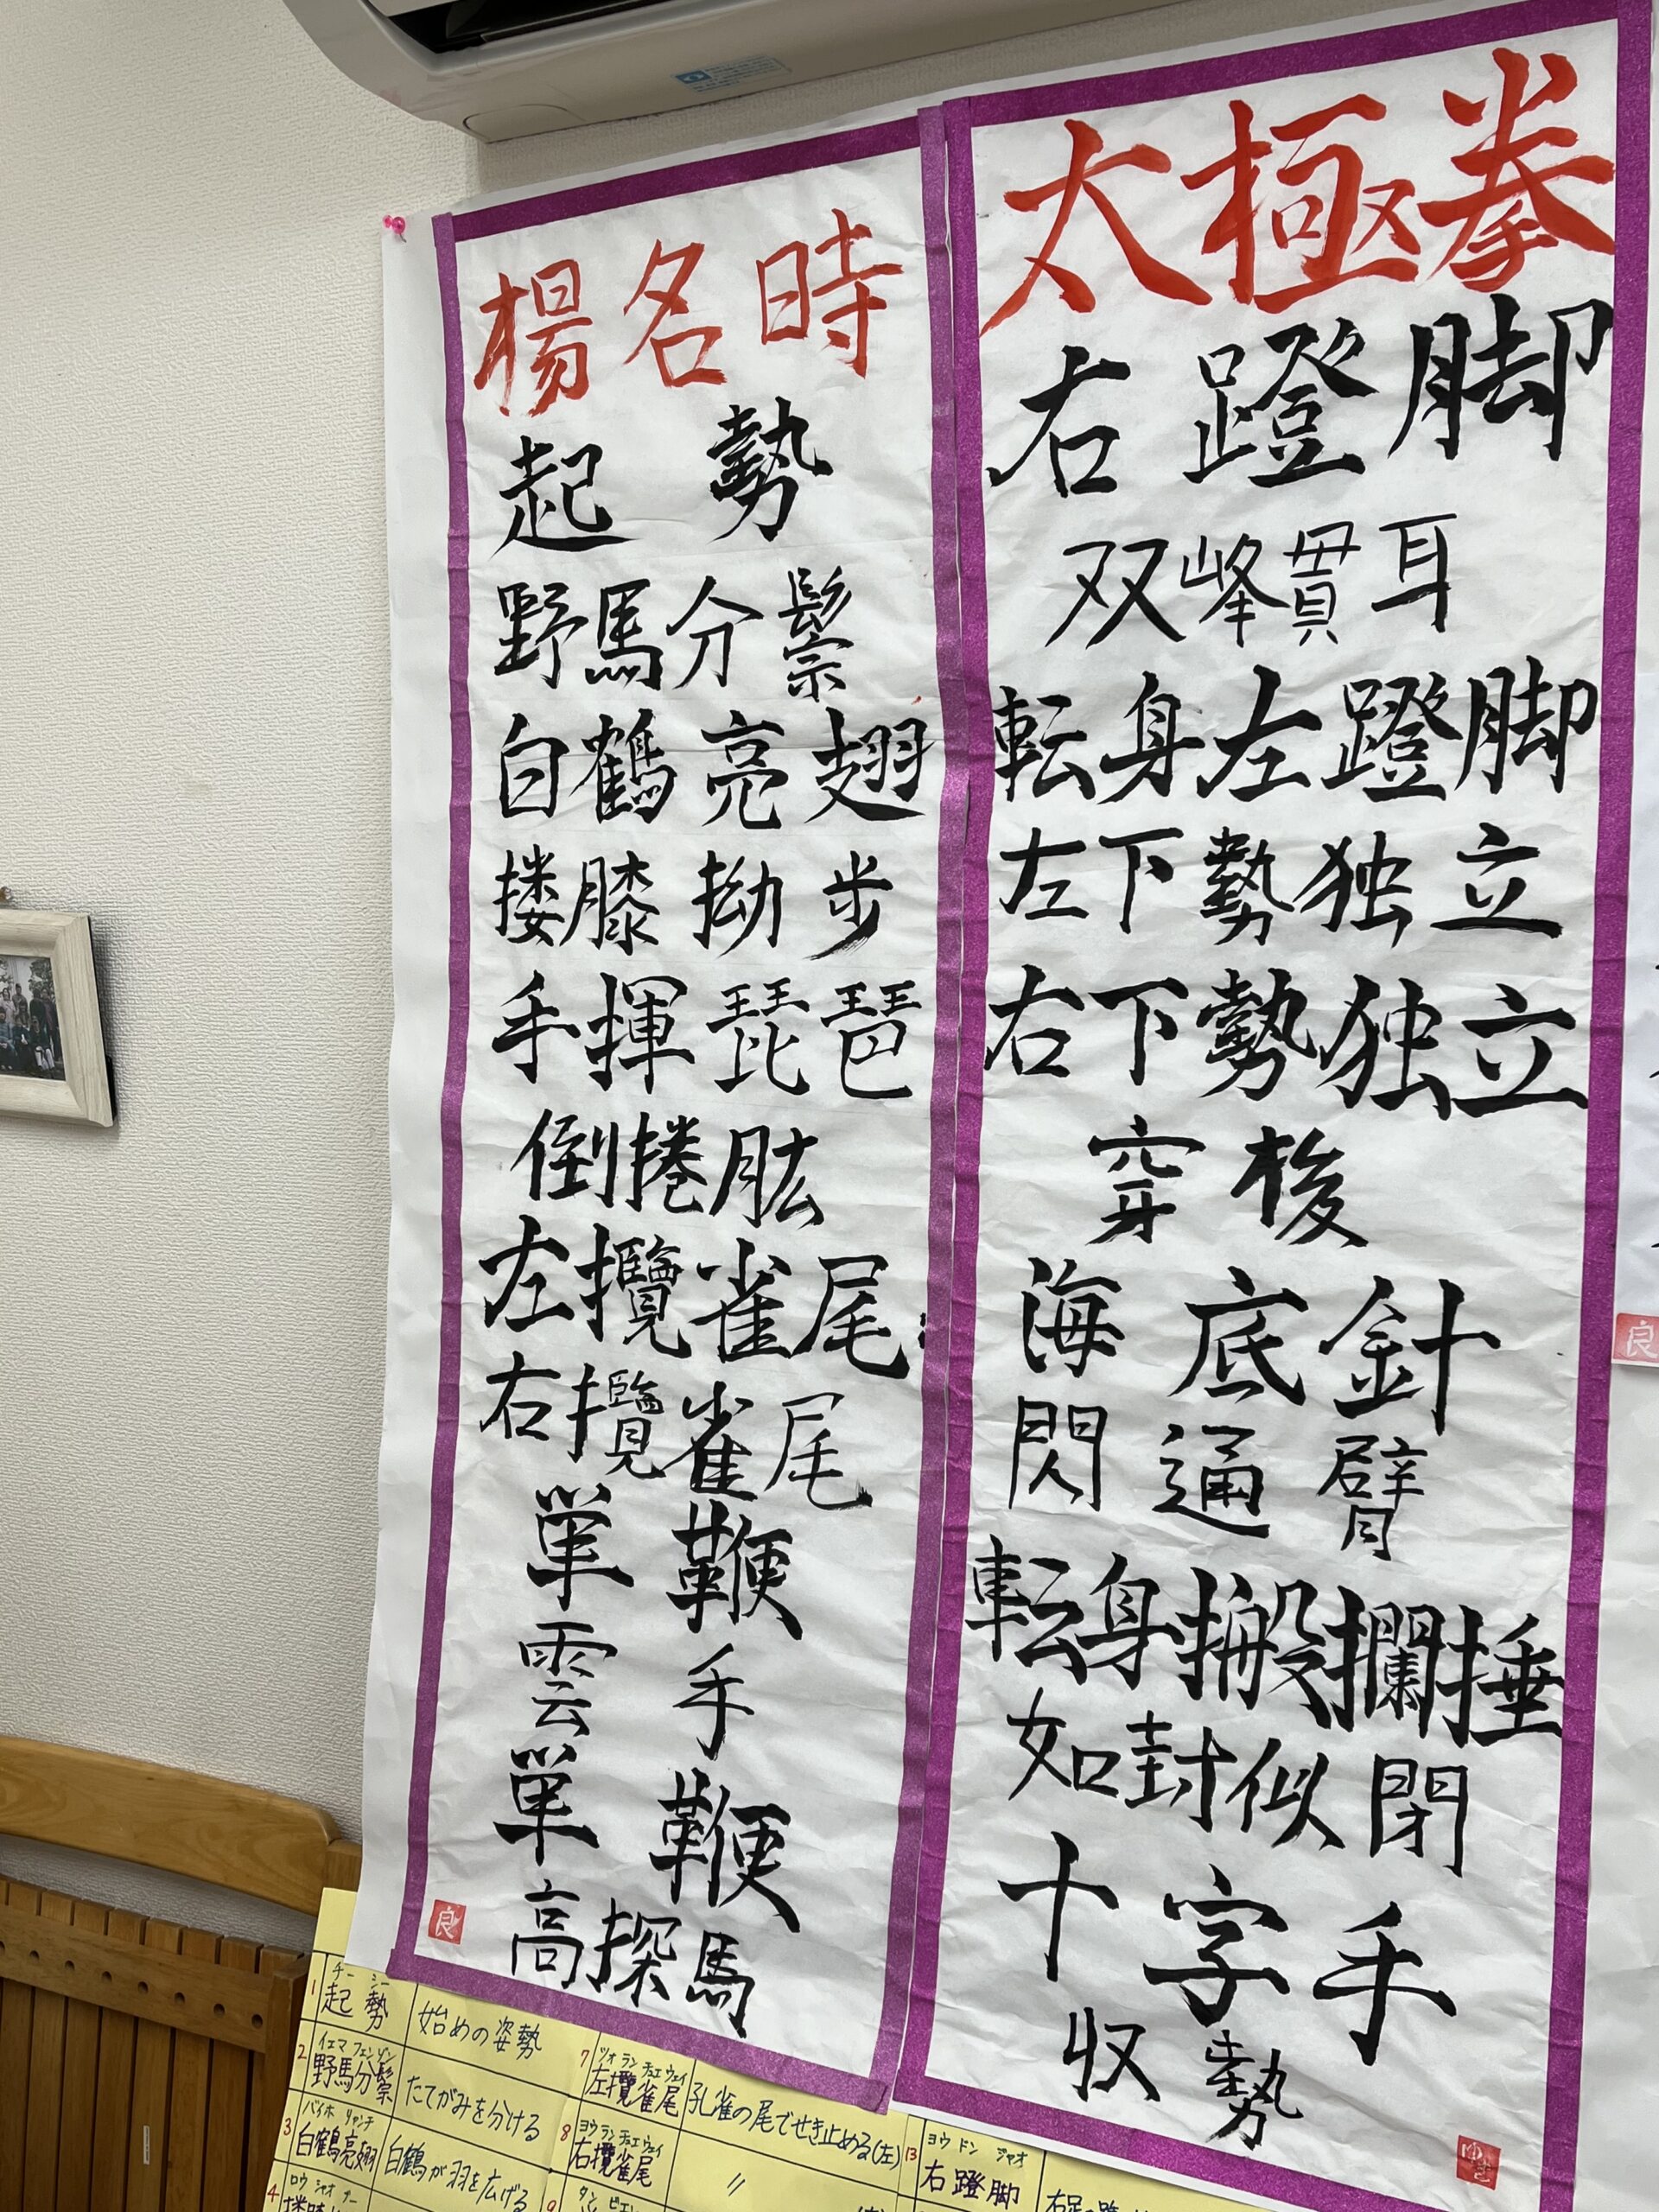 楊名時
起勢
野馬分鬃
白鶴亮翅
搂膝拗步
手揮琵琶
倒捲肱
左攬雀尾
右攬雀尾
単鞭
雲手
単鞭
高探馬
良
太極拳
右蹬脚
双峰貫耳
転身左蹬脚
左下勢独立
右下勢独立
穿梭
海底針
閃通臂
転身搬攔捶
如封似閉
十字手
収勢
良
1
チー シー
起勢
始めの姿勢
2
イエマ フェンゾン
野馬分鬃
たてがみを分ける
3
バイホ リャンチ
白鶴亮翅
白鶴が羽を広げる
4
7
ツオ ラン チュエ ウェイ
左攬雀尾
孔雀の尾でせき止める(左)
8
ヨウ ラン チュエ ウェイ
右攬雀尾
〃
9
13
ヨウ ドン ジャオ
右蹬脚